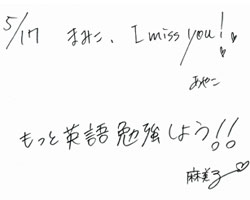 5/17 まみこ、I miss you!
あやこ
もっと英語勉強しよう!!
麻美子